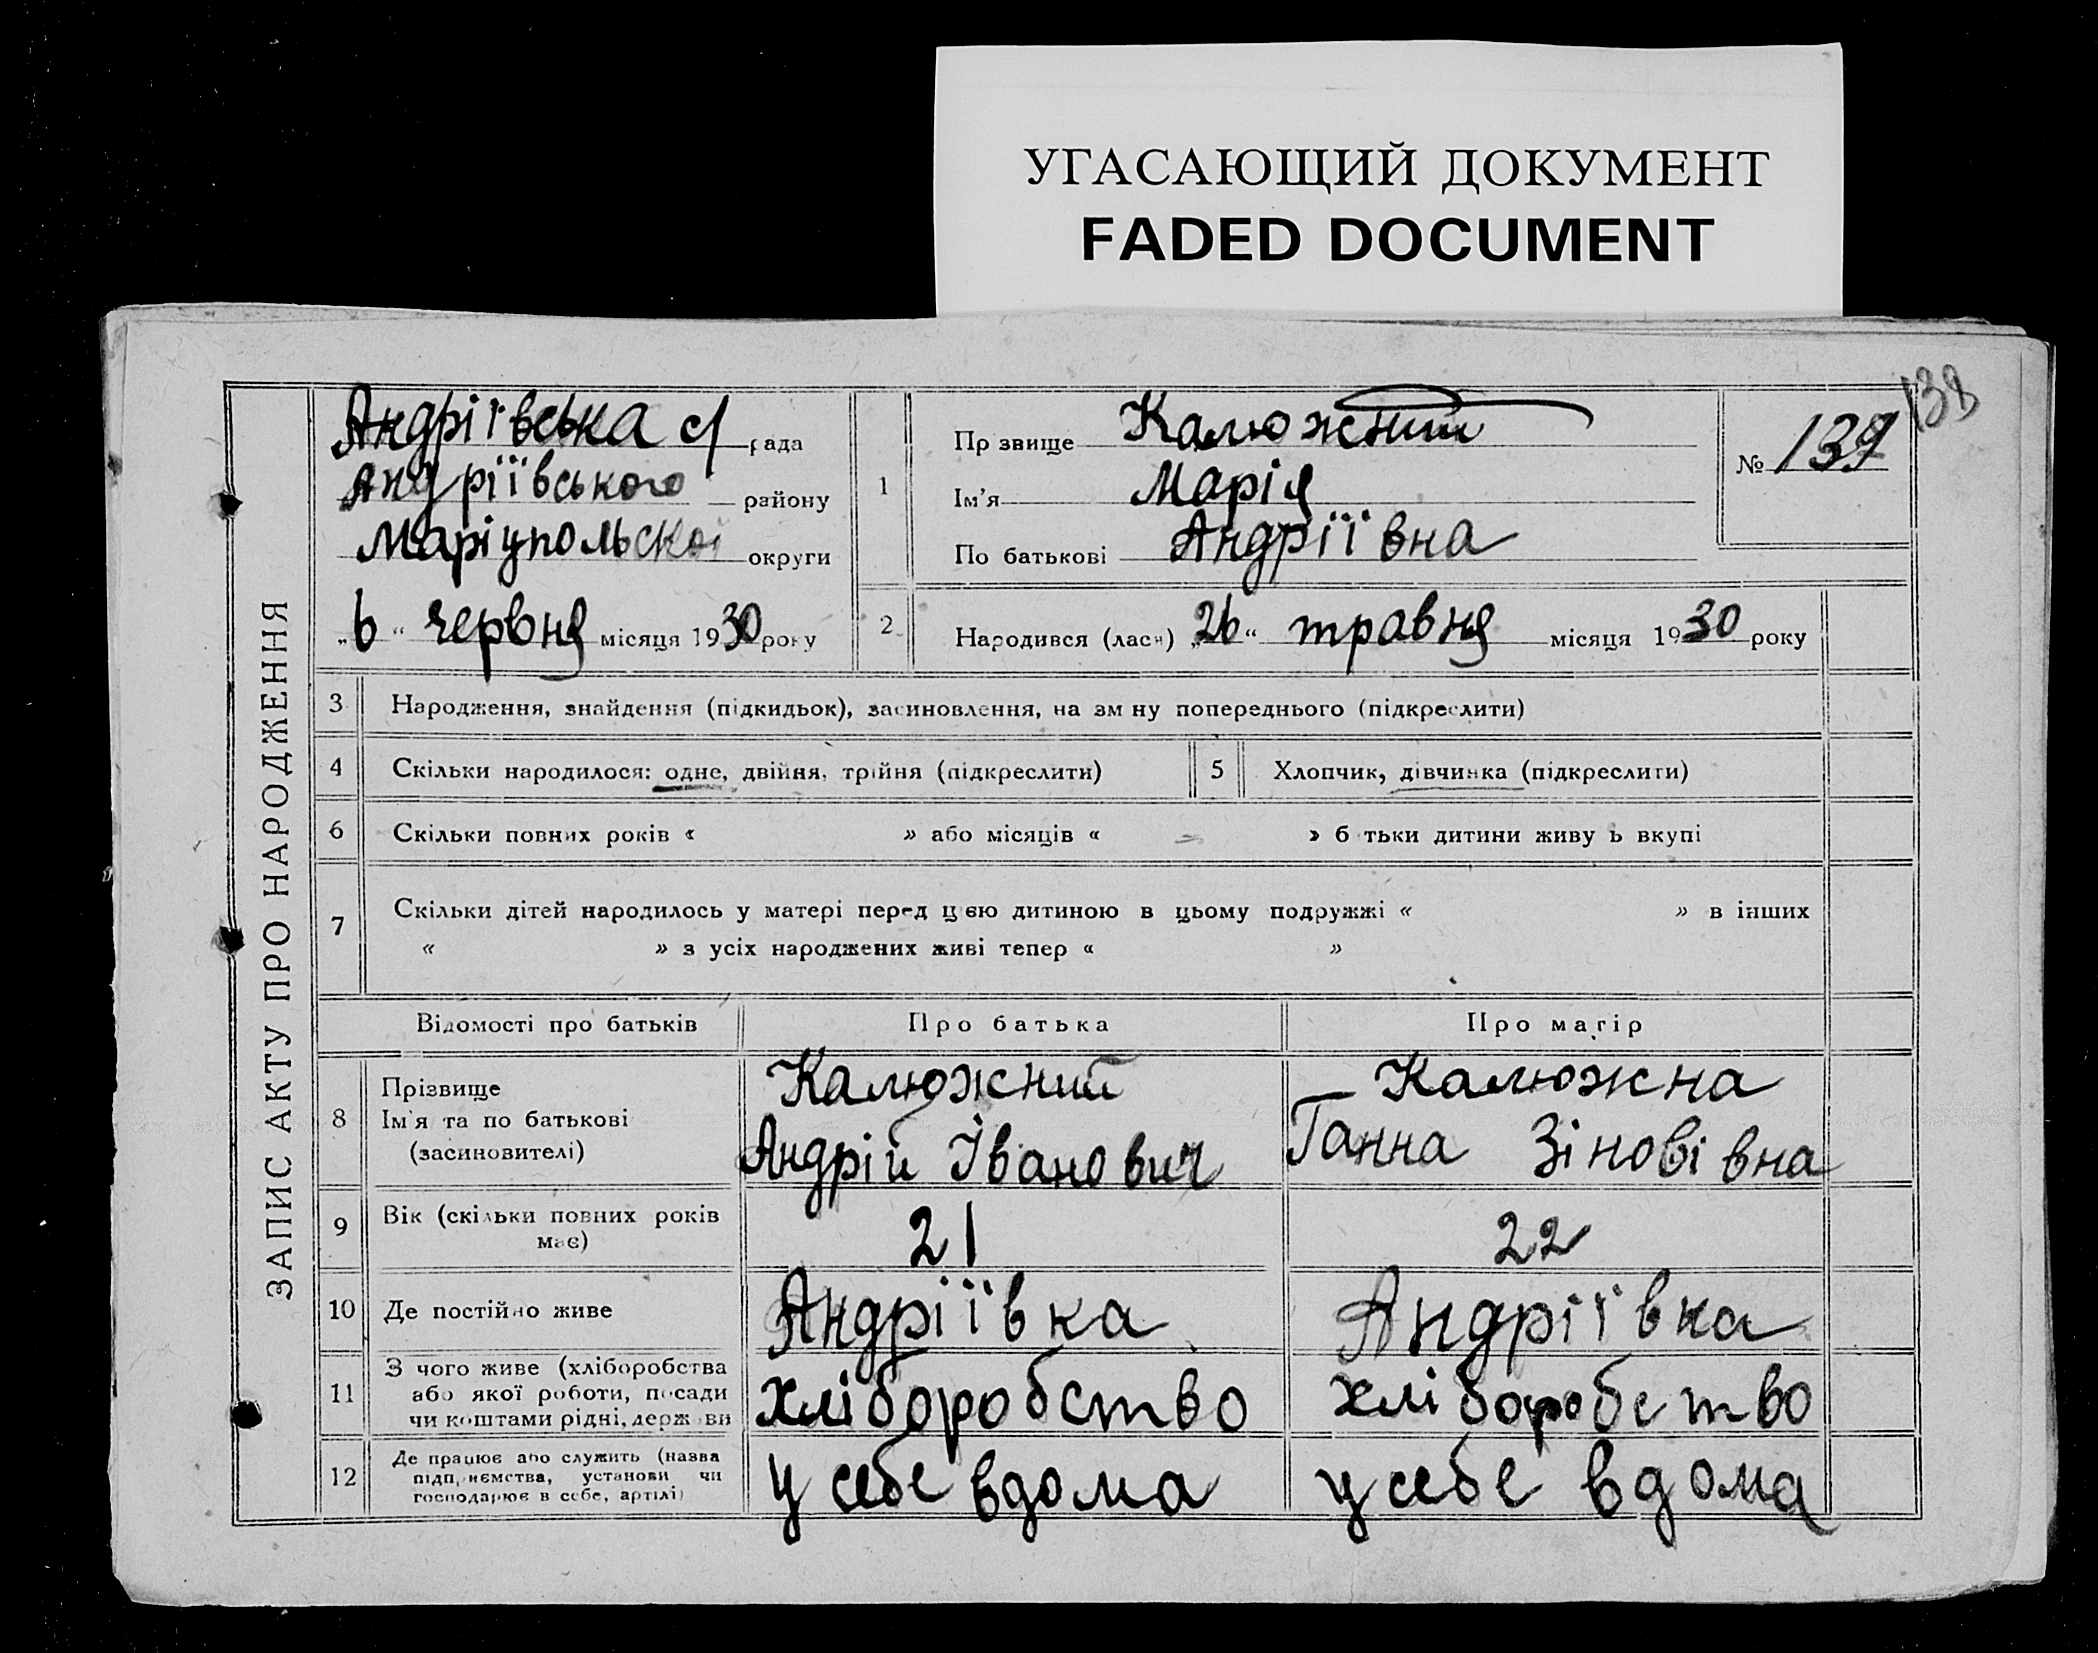 УГАСАЮЩИЙ ДОКУМЕНТ
FADED DOCUMENT
138
ЗАПИС АКТУ ПРО НАРОДЖЕННЯ
Андріївська с/рада
Андріївського району
Маріупольскої округи
„6“ червня місяця 1930 року
1
Пр звище Калюжний
Ім’я Марія
По батькові Андріївна
№ 137
2 Народився (лася) „26“ травня місяця 1930 року
3 Народження, знайдення (підкидьок), засиновлення, на зм ну попереднього (підкреслити)
4 Скільки народилося: одне, двійня, трійня (підкреслити) 5 Хлопчик, дівчинка (підкреслити)
6 Скільки повних років « » або місяців « – » б тьки дитини живу ь вкупі
7 Скільки дітей народилось у матері перед цією дитиною в цьому подружжі « » в інших
« » з усіх народжених живі тепер « »
Відомості про батьків Про батька Про матір
8 Прізвище Калюжний Калюжна
Ім'я та по батькові Андрій Іванович Ганна Зіновівна
(засиновителі)
9 Вік (скільки повних років має) 21 22
10 Де постійно живе Андріївка Андріївка
11 З чого живе (хліборобства
або якої роботи, посади
чи коштами рідні, держави хліборобство хліборобство
12 Де працює або служить (назва
підприємства, установи чи
господарює в себе, артілі) у себе вдома у себе вдома